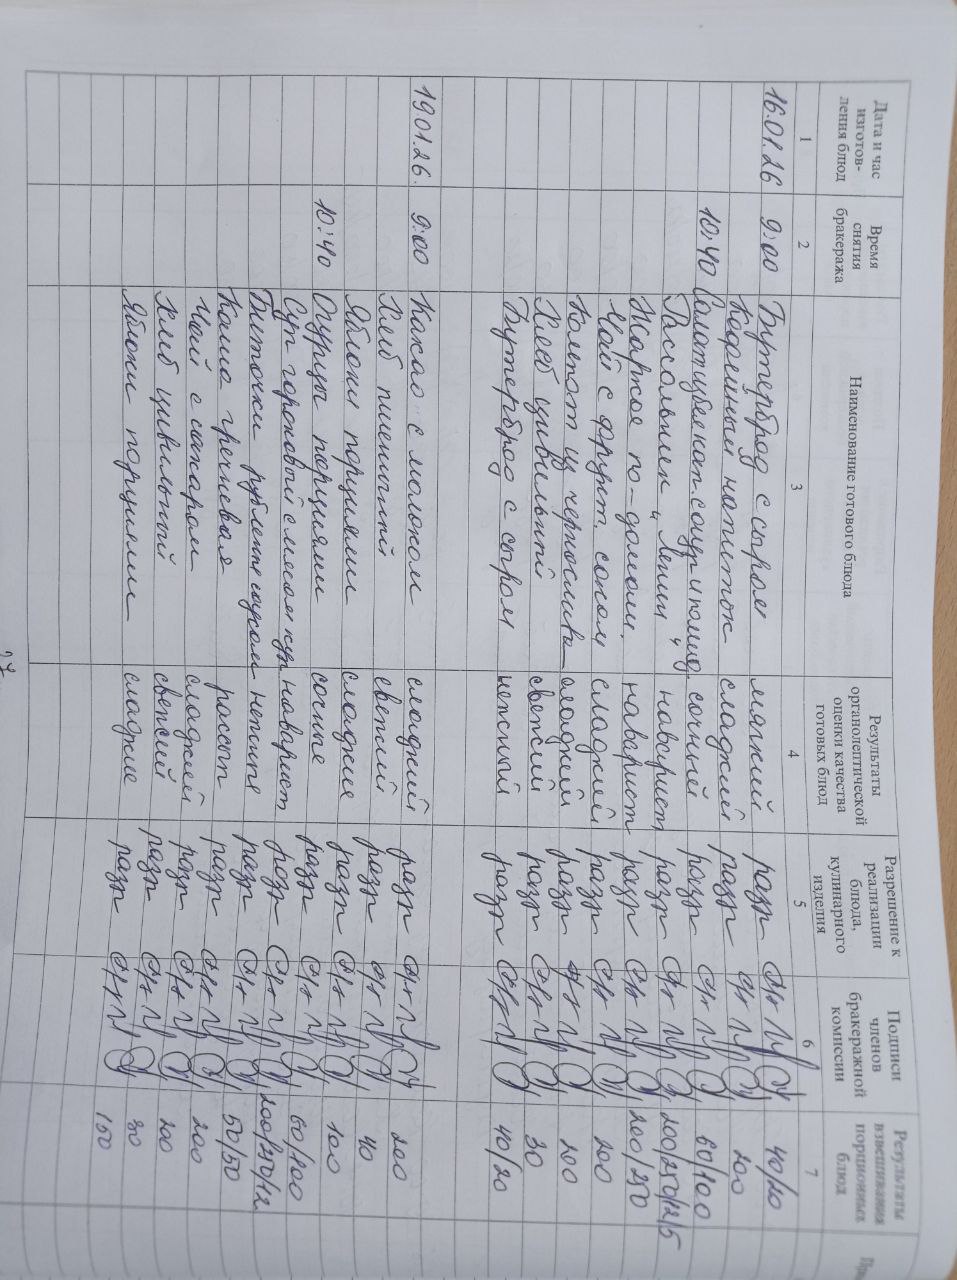 Дата и час изготов-ления блюд | Время снятия бракеража | Наименование готового блюда | Результаты органолептической оценки качества готовых блюд | Разрешение к реализации блюда, кулинарного изделия | Подписи членов бракеражной комиссии | Результаты взвешивания порционных блюд
1 2 3 4 5 6 7
16.01.26 9:00 Бутерброд с сыром мягкий разр 40/20
Кофейный напиток сладкий разр 200
10:40 Салат из бел. кап. с огур и помид. сочный разр 60/100
Рассольник "Ленин" наварист разр 200/250/12/5
Жаркое по-домаш. наварист разр 200/250
Чай с фрукт. соком сладкий разр 200
Компот из чернослива сладкий разр 200
Хлеб цивильный свежий разр 30
Бутерброд с сыром нежный разр 40/20
19.01.26. 9:00 Какао с молоком сладкий разр 200
Хлеб пшеничный свежий разр 40
Яблоки порциями сладкие разр 100
10:40 Огурцы порциями сочные разр 60/100
Суп гороховый с мясом кур наварист разр 200/250/12
Биточки рубленые нежные разр 50/50
Каша гречневая рассып разр 200
Чай с сахаром сладкий разр 200
Хлеб цивильный свежий разр 30
Яблоки порциями сладкие разр 100